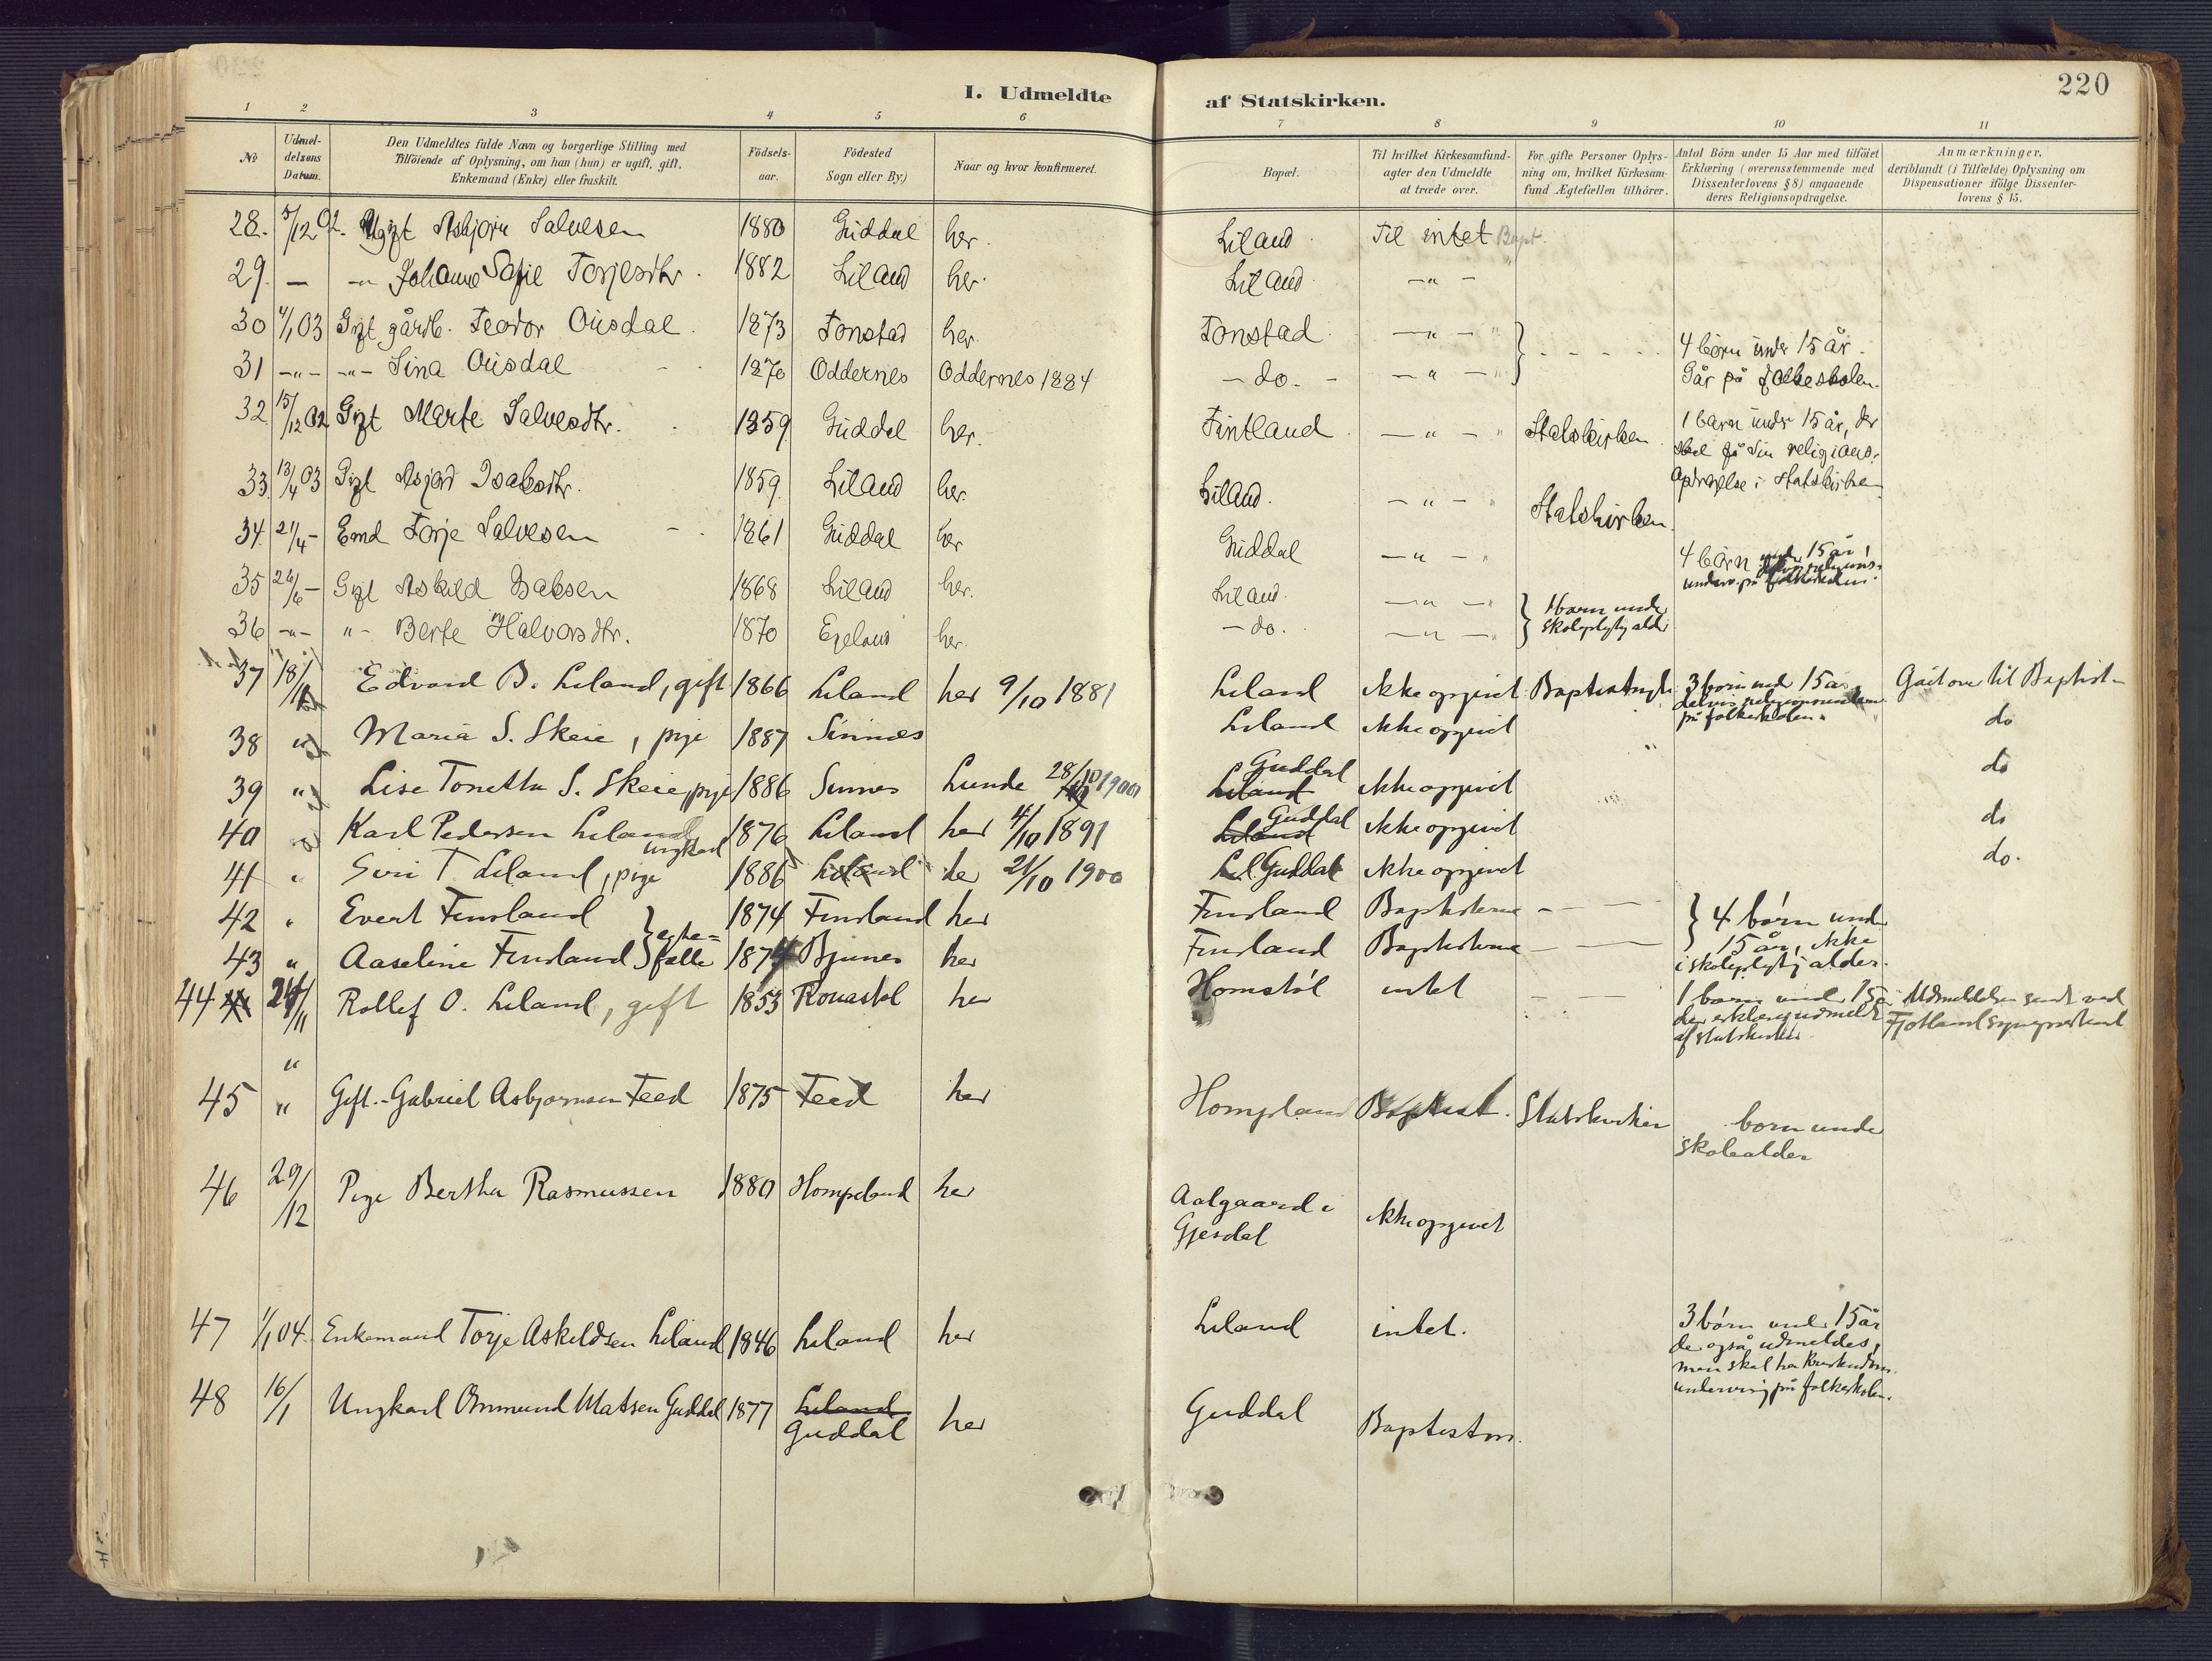 220
I. Udmeldte af Statskirken.
1 2 3 4 5 6 7 8 9 10 11
No
Udmeldelsens Datum.
Den Udmeldtes fulde Navn og borgerlige Stilling med
Tilföiende af Oplysning, om han (hun) er ugift, gift,
Enkemand (Enke) eller fraskilt.
Födselsaar.
Födested
Sogn eller By.)
Naar og hvor konfirmeret.
Bopæl.
Til hvilket Kirkesamfund-
agter den Udmeldte
at træde over.
For gifte Personer Oplys-
ning om, hvilket Kirkesam-
fund Ægtefællen tilhörer.
Antal Börn under 15 Aar med tilföiet
Erklæring (overensstemmende med
Dissenterlovens § 8) angaaende
deres Religionsopdragelse.
Anmærkninger,
deriblandt (i Tilfælde) Oplysning om
Dispensationer ifölge Dissenter-
lovens § 15.
28. 5/12 02. Ugift Asbjørn Salvesen 1880 Guddal her. Liland Til intet Bapt.
29. — -„- Johanne Sofie Torjesdtr. 1882 Liland her. Liland -„-
30 4/1 03 Gift gårdb. Teodor Ousdal. 1873 Tonstad her. Tonstad -„- 4 børn under 15 år.
31 -„- -„- Sina Ousdal 1870 Oddernes Oddernes 1884 - do. - -„- Går på folkeskolen.
32. 15/12 02 Gift Marte Salvesdtr. 1859 Guddal her. Fintland -„- Statskirken 1 barn under 15 år, der
skal få sin religions-
opdragelse i Statskirken
33. 13/4 03 Gift Asjerd Isaksdtr. 1859 Liland her. Liland. -„- Statskirken.
34. 21/4 - Emd Torje Salvesen 1861 Guddal her Guddal -„- 4 børn under 15 år,
underv. på folkeskolen.
35 26/6 - Gift Askild Isaksen 1868 Liland her. Liland. -„- 1 barn under
36 -„- „- Berte Halvorsdtr. 1870 Egeland her. - do. -„- skolepligtig alder
37 18/11 Edvard B. Liland, gift 1866 Liland her 9/10 1881 Liland ikke opgivet 3 børn under 15 år,
delvis religionsunderv.
på folkeskolen. Gået over til Baptist-
38 „ Maria S. Skeie, pige 1887 Sinnes Liland ikke opgivet „ do
39 „ Lise Tonetta S. Skeie, pige 1886 Sinnes Lunde 28/10 1900 Liland Guddal ikke opgivet do
40 „ Karl Pedersen Liland ungkarl 1876 Liland her 4/10 1891 Liland Guddal ikke opgivet do
41 „ Siri T. Liland, pige 1886 Liland her 21/10 1900 Lil Guddal ikke opgivet do.
42 „ Evert Finsland 1874 Finsland her Finsland Baptisterne - — 4 børn under
43 „ Aaseline Finsland } egte=
fælle 1874 Bjunes her Finsland Baptisterne - — 15 år, ikke
i skolepligtig alder.
44 24/11 Rollef O. Liland, gift 1853 her Homstøl intet - — 1 barn under 15 år
der erklæres udmeldt
af statskirken. Udmeldelsen sendt ved
Fjotland sogneprestembed
„
45 „ Gift. Gabriel Asbjørnsen Feed 1875 Feed her Hompland Baptist. Statskirken børn under
skolealder
46 29/12 Pige Bertha Rasmussen 1880 Hompland her Aalgaard i
Gjesdal ikke opgivet
47 1/1 04. Enkemand Torje Askildsen Liland 1846 Liland her Liland intet. 3 børn under 15 år
der også udmeldes,
men skal ha kristendoms-
undervisning på folkeskolen.
48 16/1 Ungkarl Ommund Matsen Guddal 1877 Liland
Guddal her Guddal Baptisterne.